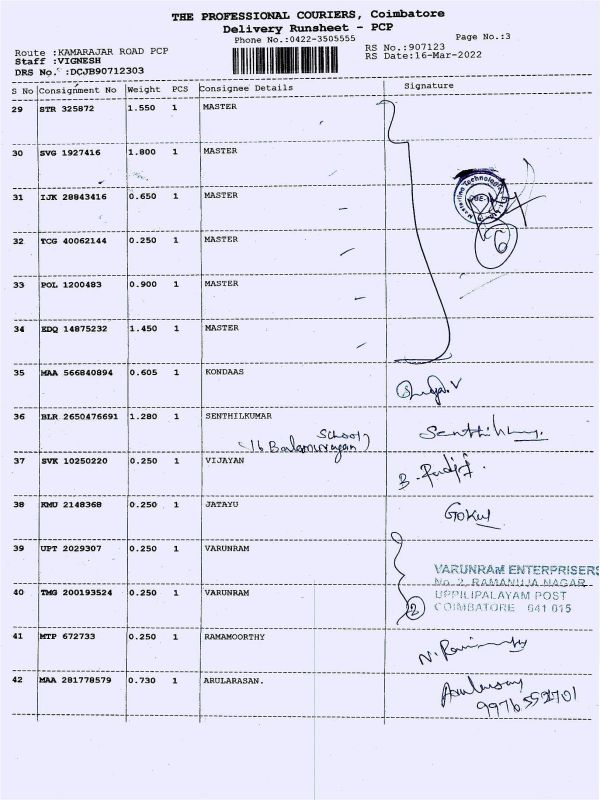 THE PROFESSIONAL COURIERS, Coimbatore
Delivery Runsheet - PCP
Phone No.:0422-3505555
Page No.:3
Route :KAMARAJAR ROAD PCP
RS No.:907123
Staff :VIGNESH
RS Date:16-Mar-2022
DRS No. :DCJB90712303
S No Consignment No Weight PCS Consignee Details Signature
29 STR 325872 1.550 1 MASTER
30 SVG 1927416 1.800 1 MASTER
31 IJK 28843416 0.650 1 MASTER
32 TCG 40062144 0.250 1 MASTER
6
33 POL 1200483 0.900 1 MASTER
34 EDQ 14875232 1.450 1 MASTER
35 MAA 566840894 0.605 1 KONDAAS
36 BLR 2650476691 1.280 1 SENTHILKUMAR
School
Balamurugan
37 SVK 10250220 0.250 1 VIJAYAN
38 KMU 2148368 0.250 1 JATAYU
Gokul
39 UPT 2029307 0.250 1 VARUNRAM
VARUNRAM ENTERPRISERS
No. 2, RAMANUJA NAGAR
40 TMG 200193524 0.250 1 VARUNRAM
2
UPPILIPALAYAM POST
COIMBATORE 641 015
41 MTP 672733 0.250 1 RAMAMOORTHY
42 MAA 281778579 0.730 1 ARULARASAN.